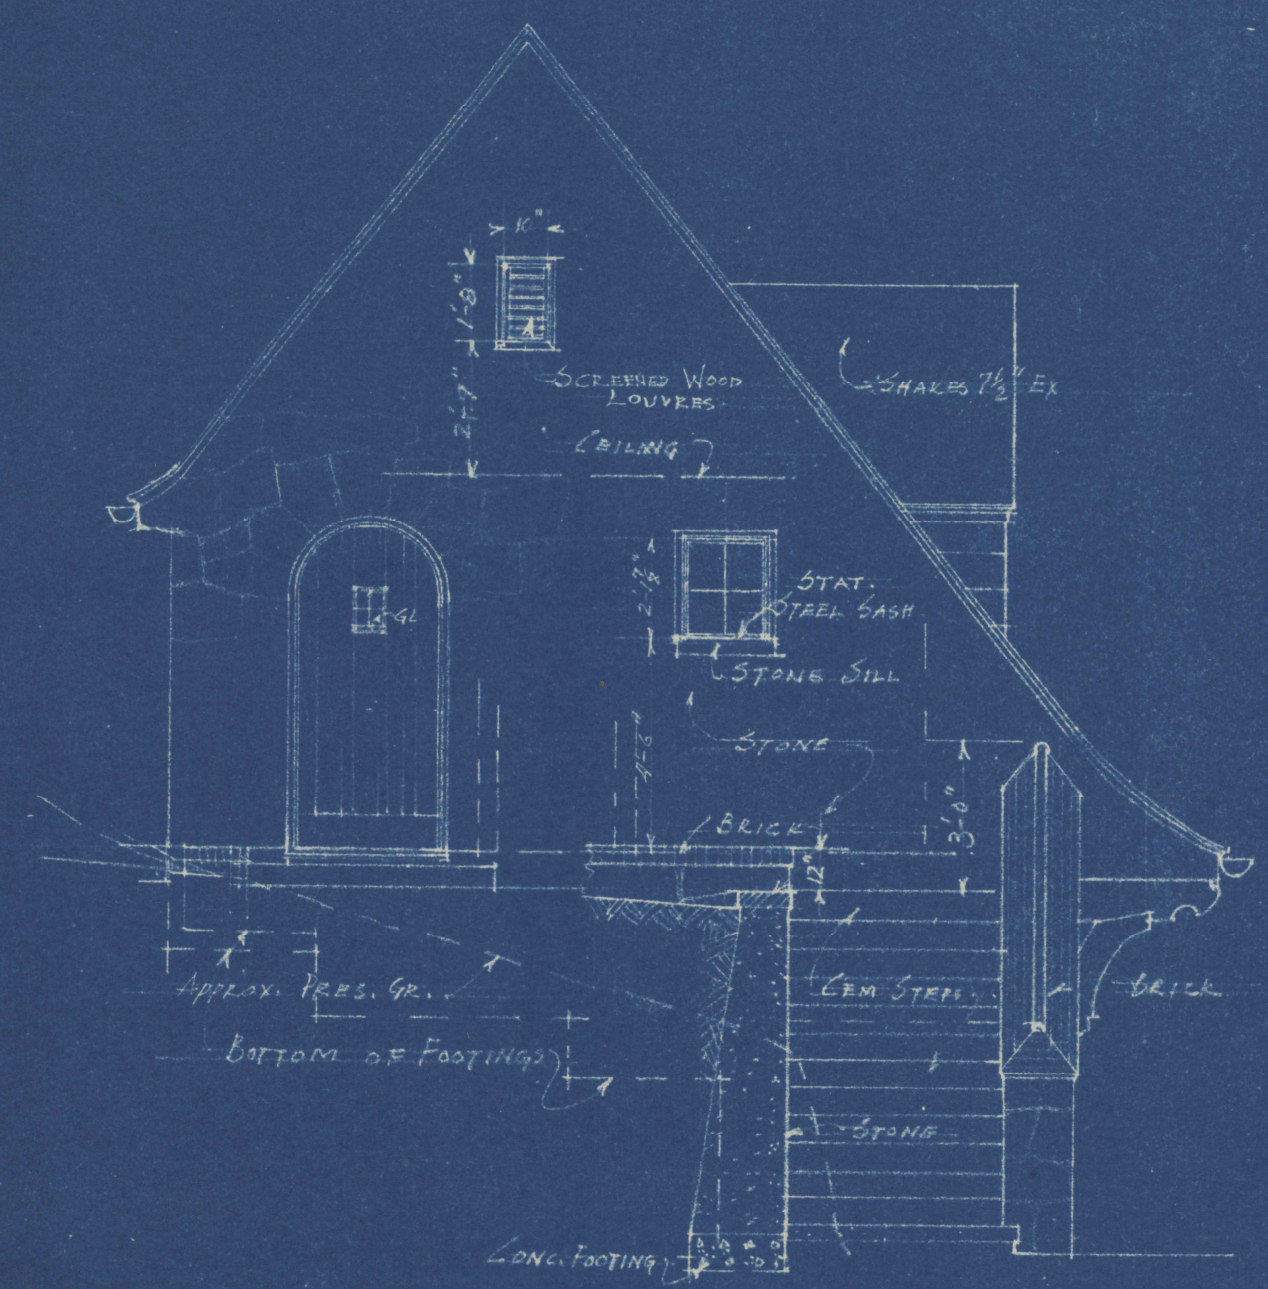 10"
1'-8"
SCREENED WOOD
LOUVRES
2'-7"
SHAKES 7½" EX
CEILING
STAT.
STEEL SASH
GL
STONE SILL
STONE
4'-6"
3'-0"
BRICK
12"
APPROX. PRES. GR.
CEM STEPS.
BRICK
BOTTOM OF FOOTINGS
STONE
CONC. FOOTING